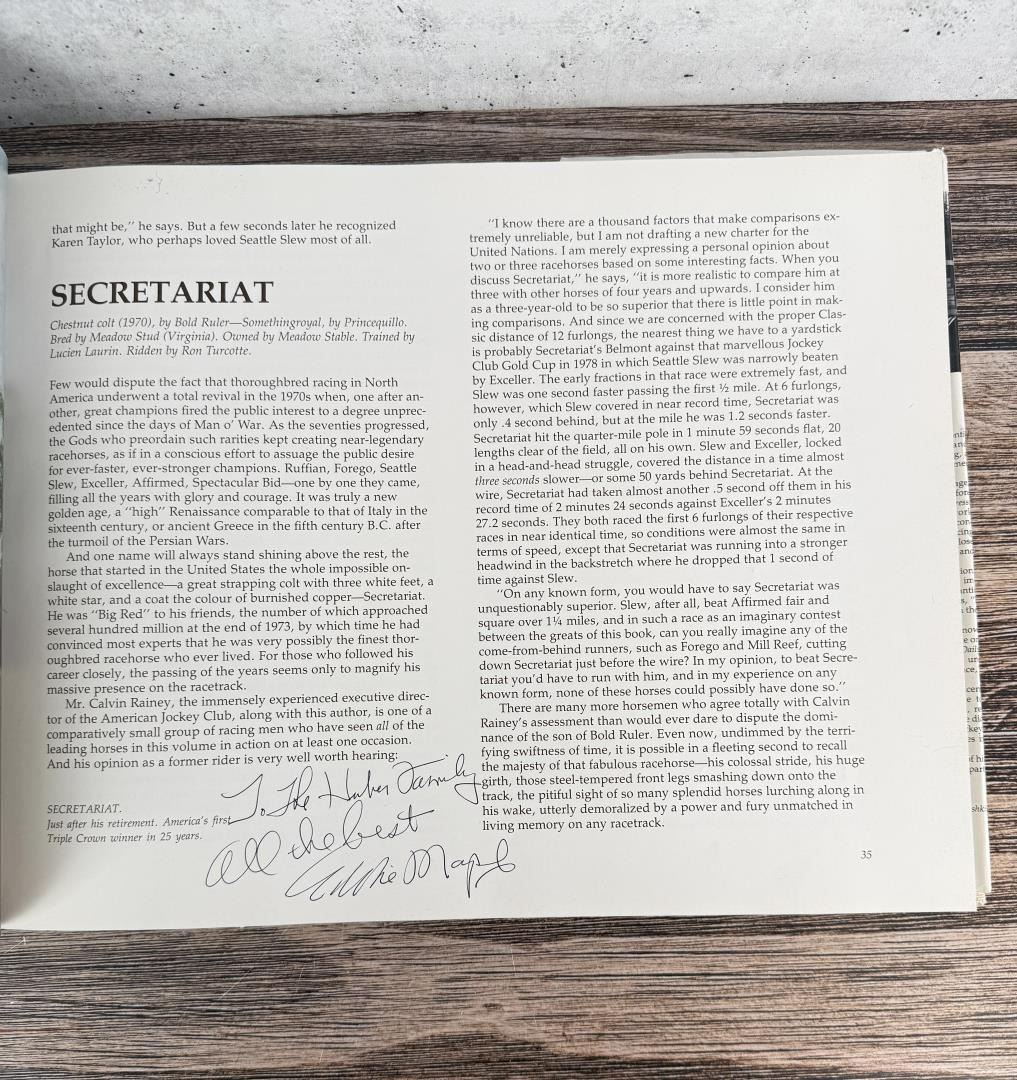 that might be,” he says. But a few seconds later he recognized
Karen Taylor, who perhaps loved Seattle Slew most of all.
SECRETARIAT
Chestnut colt (1970), by Bold Ruler—Somethingroyal, by Princequillo.
Bred by Meadow Stud (Virginia). Owned by Meadow Stable. Trained by
Lucien Laurin. Ridden by Ron Turcotte.
Few would dispute the fact that thoroughbred racing in North
America underwent a total revival in the 1970s when, one after an-
other, great champions fired the public interest to a degree unprec-
edented since the days of Man o’ War. As the seventies progressed,
the Gods who preordain such rarities kept creating near-legendary
racehorses, as if in a conscious effort to assuage the public desire
for ever-faster, ever-stronger champions. Ruffian, Forego, Seattle
Slew, Exceller, Affirmed, Spectacular Bid—one by one they came,
filling all the years with glory and courage. It was truly a new
golden age, a “high” Renaissance comparable to that of Italy in the
sixteenth century, or ancient Greece in the fifth century B.C. after
the turmoil of the Persian Wars.
And one name will always stand shining above the rest, the
horse that started in the United States the whole impossible on-
slaught of excellence—a great strapping colt with three white feet, a
white star, and a coat the colour of burnished copper—Secretariat.
He was “Big Red” to his friends, the number of which approached
several hundred million at the end of 1973, by which time he had
convinced most experts that he was very possibly the finest thor-
oughbred racehorse who ever lived. For those who followed his
career closely, the passing of the years seems only to magnify his
massive presence on the racetrack.
Mr. Calvin Rainey, the immensely experienced executive direc-
tor of the American Jockey Club, along with this author, is one of a
comparatively small group of racing men who have seen all of the
leading horses in this volume in action on at least one occasion.
And his opinion as a former rider is very well worth hearing:
SECRETARIAT.
Just after his retirement. America’s first
Triple Crown winner in 25 years.
To The Huber Family
All the best
Eddie Maple
“I know there are a thousand factors that make comparisons ex-
tremely unreliable, but I am not drafting a new charter for the
United Nations. I am merely expressing a personal opinion about
two or three racehorses based on some interesting facts. When you
discuss Secretariat,” he says, “it is more realistic to compare him at
three with other horses of four years and upwards. I consider him
as a three-year-old to be so superior that there is little point in mak-
ing comparisons. And since we are concerned with the proper Clas-
sic distance of 12 furlongs, the nearest thing we have to a yardstick
is probably Secretariat’s Belmont against that marvellous Jockey
Club Gold Cup in 1978 in which Seattle Slew was narrowly beaten
by Exceller. The early fractions in that race were extremely fast, and
Slew was one second faster passing the first ½ mile. At 6 furlongs,
however, which Slew covered in near record time, Secretariat was
only .4 second behind, but at the mile he was 1.2 seconds faster.
Secretariat hit the quarter-mile pole in 1 minute 59 seconds flat, 20
lengths clear of the field, all on his own. Slew and Exceller, locked
in a head-and-head struggle, covered the distance in a time almost
three seconds slower—or some 50 yards behind Secretariat. At the
wire, Secretariat had taken almost another .5 second off them in his
record time of 2 minutes 24 seconds against Exceller’s 2 minutes
27.2 seconds. They both raced the first 6 furlongs of their respective
races in near identical time, so conditions were almost the same in
terms of speed, except that Secretariat was running into a stronger
headwind in the backstretch where he dropped that 1 second of
time against Slew.
“On any known form, you would have to say Secretariat was
unquestionably superior. Slew, after all, beat Affirmed fair and
square over 1¼ miles, and in such a race as an imaginary contest
between the greats of this book, can you really imagine any of the
come-from-behind runners, such as Forego and Mill Reef, cutting
down Secretariat just before the wire? In my opinion, to beat Secre-
tariat you’d have to run with him, and in my experience on any
known form, none of these horses could possibly have done so.”
There are many more horsemen who agree totally with Calvin
Rainey’s assessment than would ever dare to dispute the domi-
nance of the son of Bold Ruler. Even now, undimmed by the terri-
fying swiftness of time, it is possible in a fleeting second to recall
the majesty of that fabulous racehorse—his colossal stride, his huge
girth, those steel-tempered front legs smashing down onto the
track, the pitiful sight of so many splendid horses lurching along in
his wake, utterly demoralized by a power and fury unmatched in
living memory on any racetrack.
35